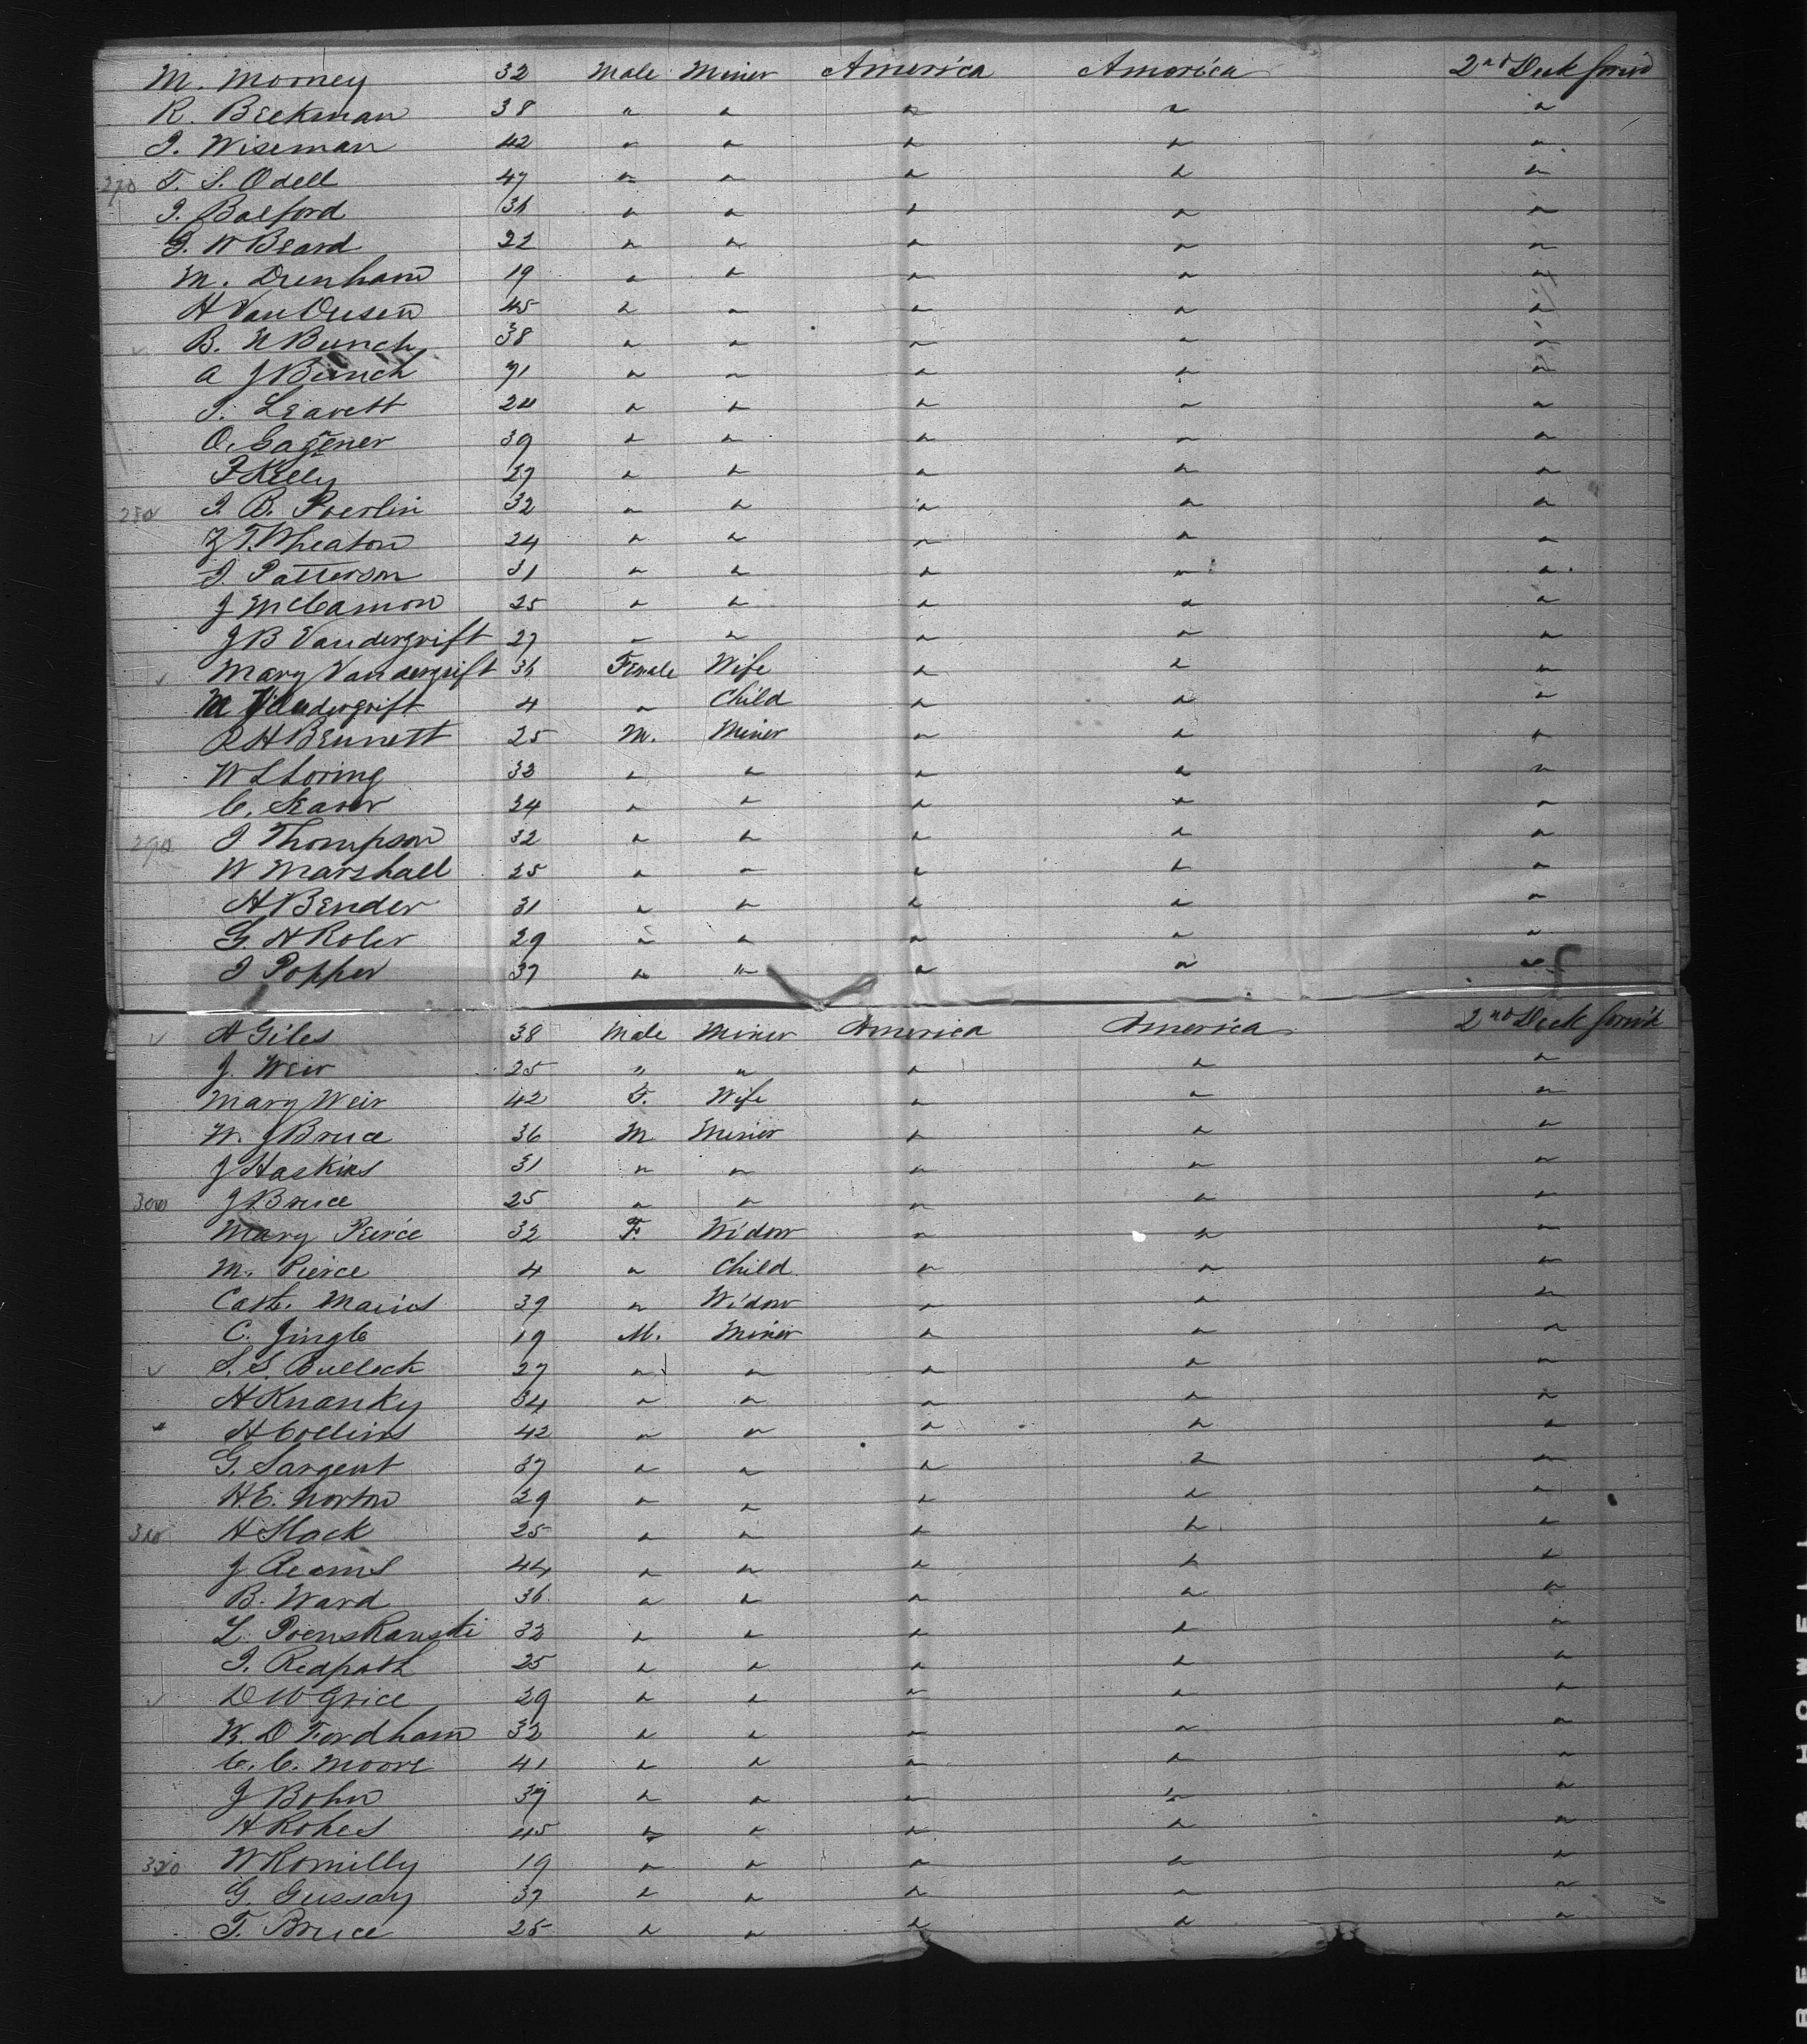 M. Morney 32 Male Miner America America 2nd Deck forw'd
R. Beekman 38 " " " " "
J. Wiseman 42 " " " " "
270 T. S. Odell 47 " " " " "
J. Balford 36 " " " " "
G. W Beard 22 " " " " "
M. Drenham 19 " " " " "
H Van Dusen 45 " " " " "
B. N Bunch 38 " " " " "
A J Bunch 71 " " " " "
J. Leavett 24 " " " " "
O. Gagener 39 " " " " "
F Kelly 27 " " " " "
280 J. B. Poerlin 32 " " " " "
Z T. Wheaton 24 " " " " "
J. Patterson 31 " " " " "
J McCamon 25 " " " " "
J B Vandergrift 27 " " " " "
Mary Vandergrift 36 Female Wife " " "
M Vandergrift 4 " Child " " "
R H Bennett 25 M. Miner " " "
W L Loring 32 " " " " "
C. Seaver 24 " " " " "
290 J Thompson 32 " " " " "
W Marshall 25 " " " " "
H Bender 31 " " " " "
G. H Roler 29 " " " " "
J Popper 37 " " " " "
A Giles 38 Male Miner America America 2nd Deck forw'd
J. Weir 25 " " " " "
Mary Weir 42 F. Wife " " "
W. J Bruce 36 M Miner " " "
J Haskins 31 " " " " "
300 J Bruce 25 " " " " "
Mary Peirce 32 F. Widow " " "
M. Pierce 4 " Child " " "
Cath. 39 " Widow " " "
C. Jingle 19 M. Miner " " "
S. S. Bullock 27 " " " " "
H Knanky 34 " " " " "
H Collins 42 " " " " "
G. Sargent 37 " " " " "
H. E. Norton 29 " " " " "
310 H Slack 25 " " " " "
J 44 " " " " "
B. Ward 36 " " " " "
L. Poenskanski 32 " " " " "
J. Redpath 25 " " " " "
D W Grice 29 " " " " "
W. D Fordham 32 " " " " "
C. C. Moore 41 " " " " "
J Bohn 37 " " " " "
H Rohes 45 " " " " "
320 W Romilly 19 " " " " "
G. Gussay 37 " " " " "
T. Bruce 25 " " " " "
BELL & HOWELL